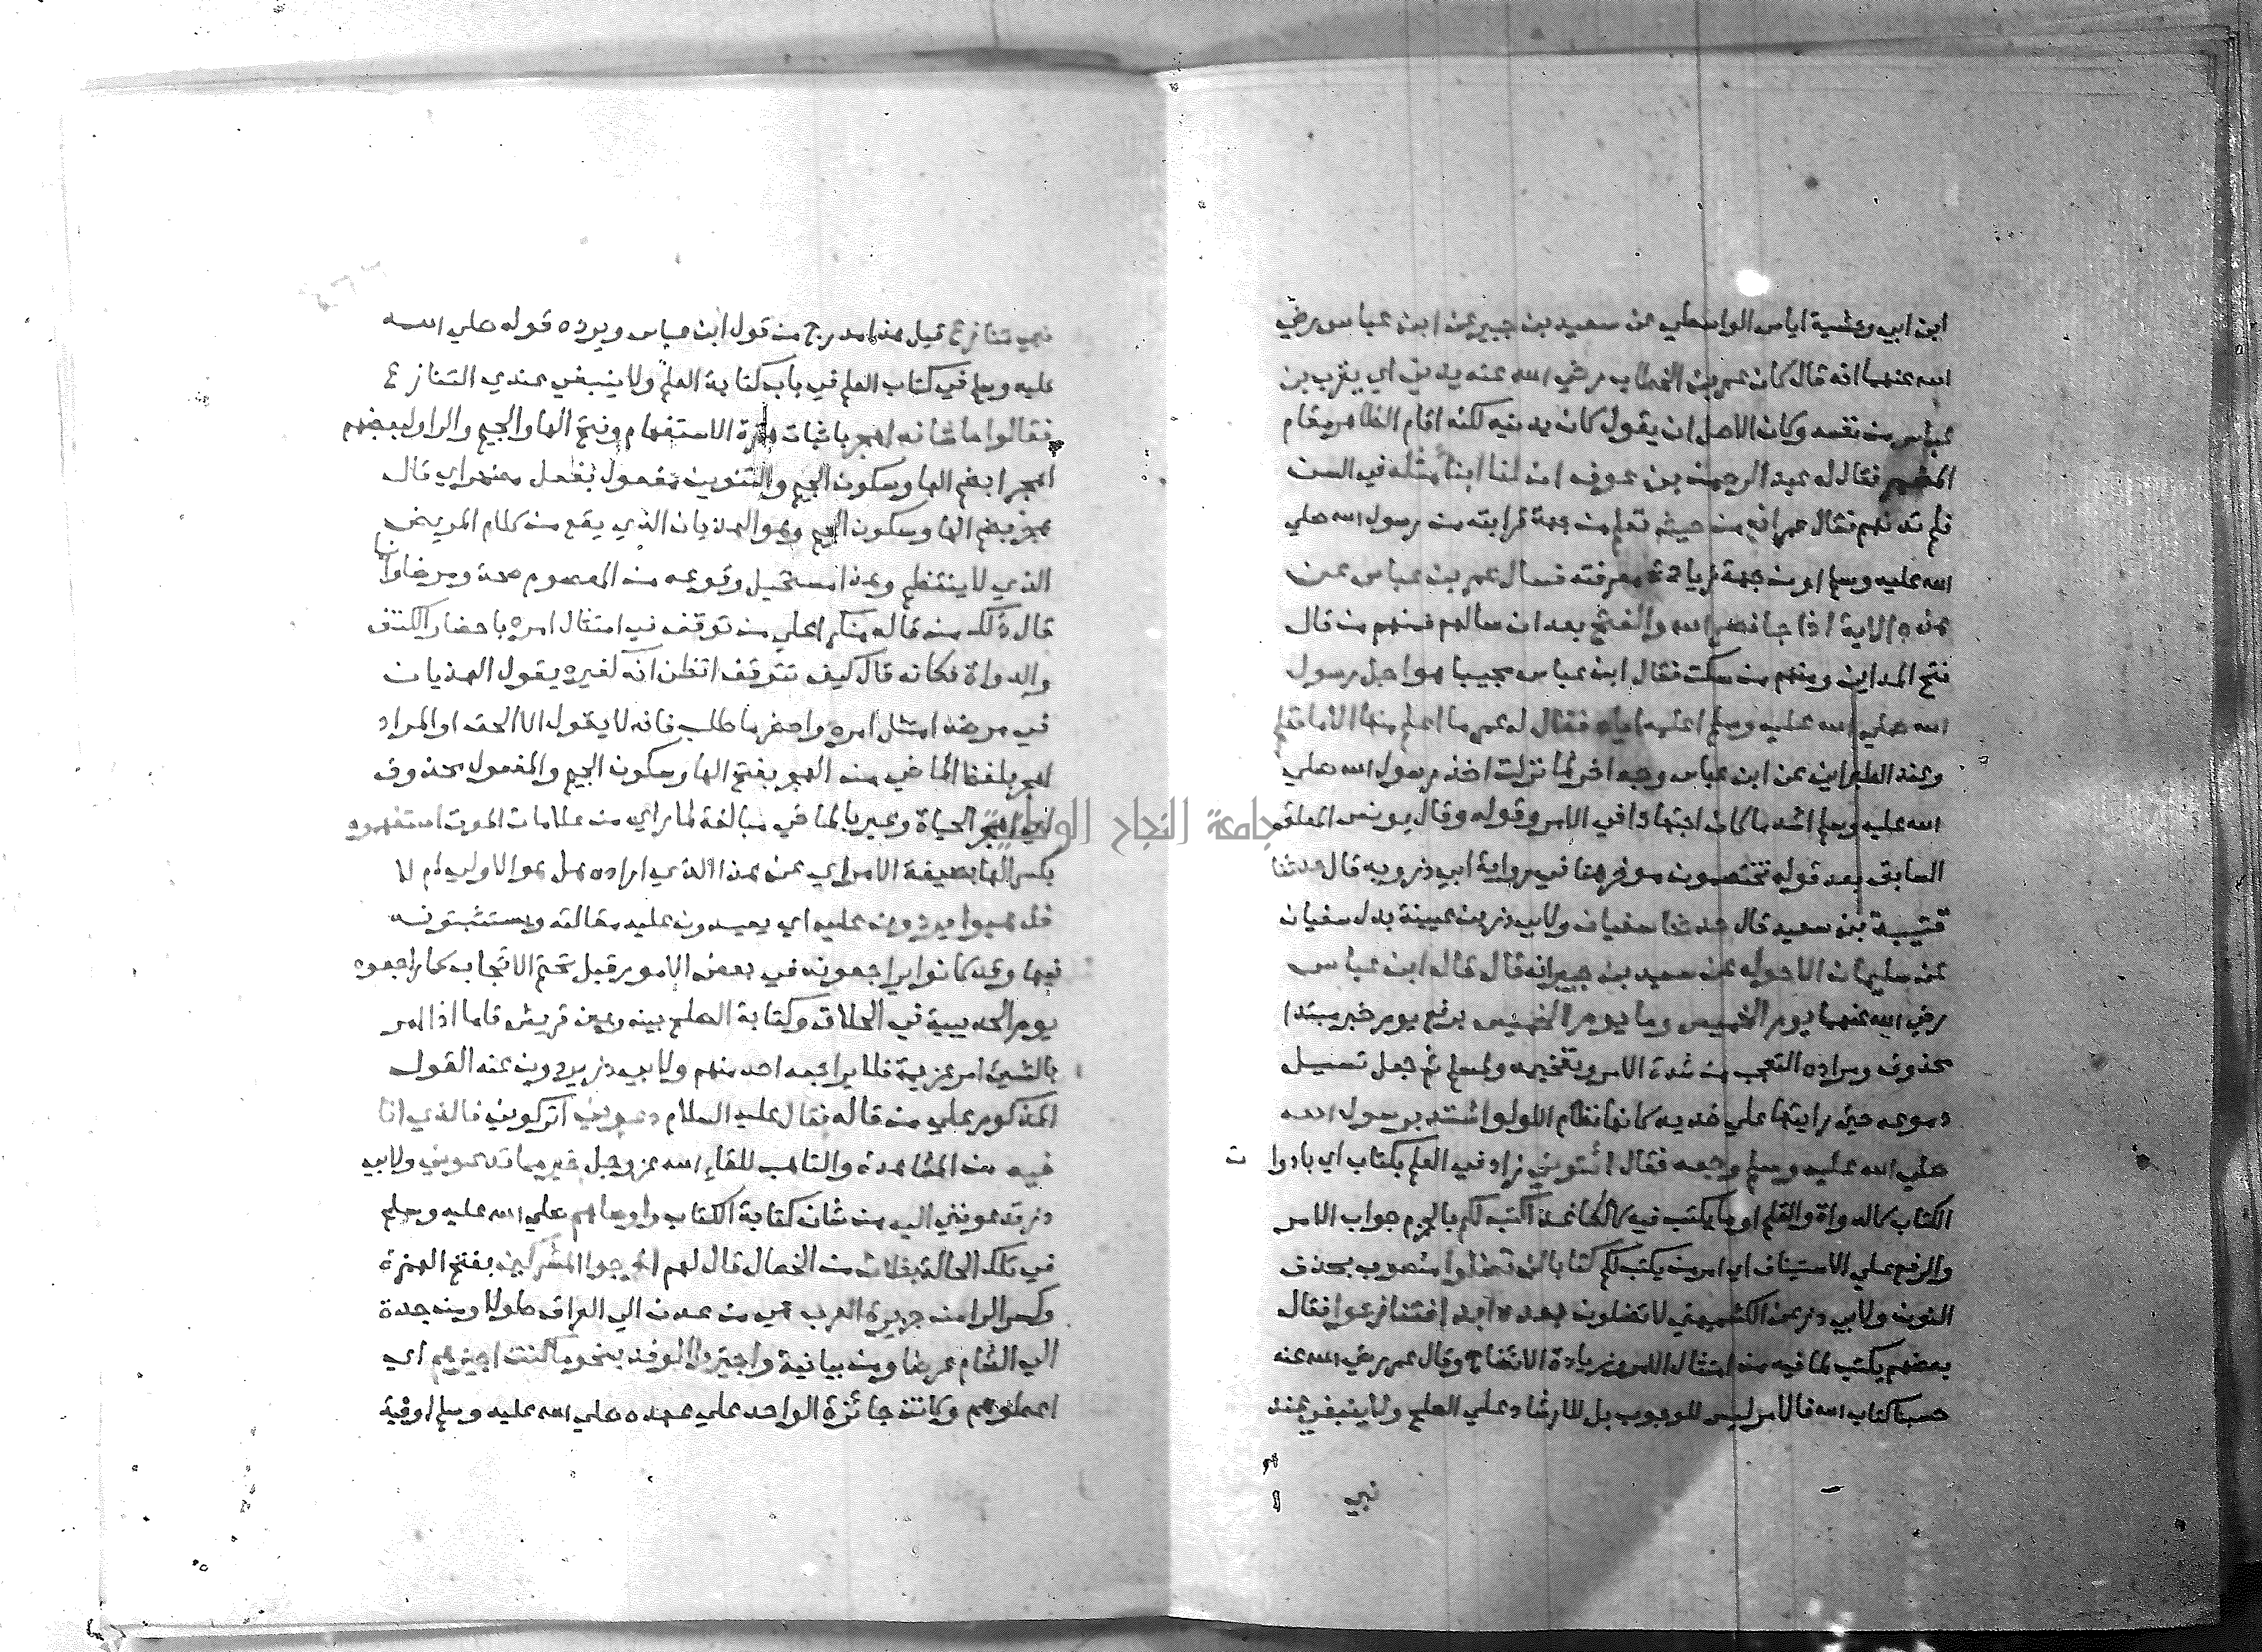 ابن ابي وحشية اياس الواسطي عن سعيد بن جبير عن ابن عباس رضي
الله عنهما انه قال كان عمر بن الخطاب رضي الله عنه يدني اي يقرب بن
عباس من نفسه وكان الاصل ان يقول كان يدنيه لكنه اقام الظاهر مقام
المضمر فقال له عبد الرحمن بن عوف ان لنا ابنا مثله في السن
فلم تدنهم فقال عمر انه من حيث تعلم من جهة قرابته من رسول الله صلي
الله عليه وسلم او من جهة زيادة معرفته فسال عمر بن عباس عن
هذه الاية اذا جا نصر الله والفتح بعد ان سالهم فمنهم من قال
فتح المداين ومنهم من سكت فقال ابن عباس مجيبا هو اجل رسول
الله صلي الله عليه وسلم اعلمه اياه فقال له عمر ما اعلم منها الا ما تعلم
وعند الطبراني عن ابن عباس وجه اخر لما نزلت اخذ رسول الله صلي
الله عليه وسلم اشد ما كان اجتهادا في الامر وقوله وقال يونس المعلق
السابق بعد قوله تختصمون موخر هنا في رواية ابي ذر وبه قال حدثنا
قتيبة بن سعيد قال حدثنا سفيان ولابي ذر بن عيينة بدل سفيان
عن سليمان الاحول عن سعيد بن جبير انه قال قال ابن عباس
رضي الله عنهما يوم الخميس وما يوم الخميس برفع يوم خبر مبتدا
محذوف ومراده التعجب من شدة الامر وتفخيمه ولمسلم ثم جعل تسيل
دموعه حتى رايتها علي خديه كانها نظام اللولو اشتد برسول الله
صلي الله عليه وسلم وجعه فقال ائتوني زاد في العلم بكتاب اي بادوات
الكتاب كالدواة والقلم او ما يكتب فيه كالكاغد اكتب لكم بالجزم جواب الامر
والرفع علي الاستيناف اي امر من يكتب لكم كتابا لن تضلوا منصوب بحذف
النون ولابي ذر عن الكشميهني لا تضلون بعده ابدا فتنازعوا فقال
بعضهم يكتب لما فيه من امتثال الامر وزيادة الايضاح وقال عمر رضي الله عنه
حسبنا كتاب الله فالامر ليس للوجوب بل للارشاد علي الصلح ولا ينبغي عند
نبي
نبي تنازع قيل هذا مدرج من قول ابن عباس ويرده قوله صلي الله
عليه وسلم في كتاب العلم في باب كتابة العلم ولا ينبغي عندي التنازع
فقالوا ما شانه اهجر باثبات همزة الاستفهام وفتح الها والجيم والرا ولبعضهم
اهجرا بضم الها وسكون الجيم والتنوين مفعول بفعل مضمر اي قال
هجر بضم الها وسكون الجيم وهو الهذيان الذي يقع من كلام المريض
الذي لا ينتظم وهذا مستحيل وقوعه من المعصوم صحة ومرضا وانما
قال ذلك من قاله منكرا علي من توقف في امتثال امره باحضار الكتف
والدواة فكانه قال كيف تتوقف اتظن انه كغيره يقول الهذيان
في مرضه امتثل امره واحضر ما طلب فانه لا يقول الا الحق او المراد
اهجر بلفظ الماضي من الهجر بفتح الها وسكون الجيم والمفعول محذوف
اي اهجر الحياة وعبر بالماضي مبالغة لما راي من علامات الموت استفهموه
بكسر الها بصيغة الامر اي عن هذا الذي اراده هل هو الاولي ام لا
فذهبوا يردون عليه اي يعيدون عليه مقالته ويستثبتونه
فيها وقد كانوا يراجعونه في بعض الامور قبل تحتم الايجاب كما راجعوه
يوم الحديبية في الحلاق وكتابة الصلح بينه وبين قريش فاما اذا امر
بالشي امر عزيمة فلا يراجعه احد منهم ولابي ذر يردون عنه القول
المذكور علي من قاله فقال عليه السلام دعوني اتركوني فالذي انا
فيه من المشاهدة والتاهب للقاء الله عز وجل خير مما تدعوني ولابي
ذر تدعونني اليه من شان كتابة الكتاب واوصاهم صلي الله عليه وسلم
في تلك الحالة بثلاث من الخصال قال لهم اخرجوا المشركين بفتح الهمزة
وكسر الرا من جزيرة العرب هي من عدن الي العراق طولا ومن جدة
الي الشام عرضا ومن بيانية واجيزوا الوفد بنحو ما كنت اجيزهم اي
اعطوهم وكانت جائزة الواحد علي عهده صلي الله عليه وسلم اوقية
جامعة النجاح الوطنية